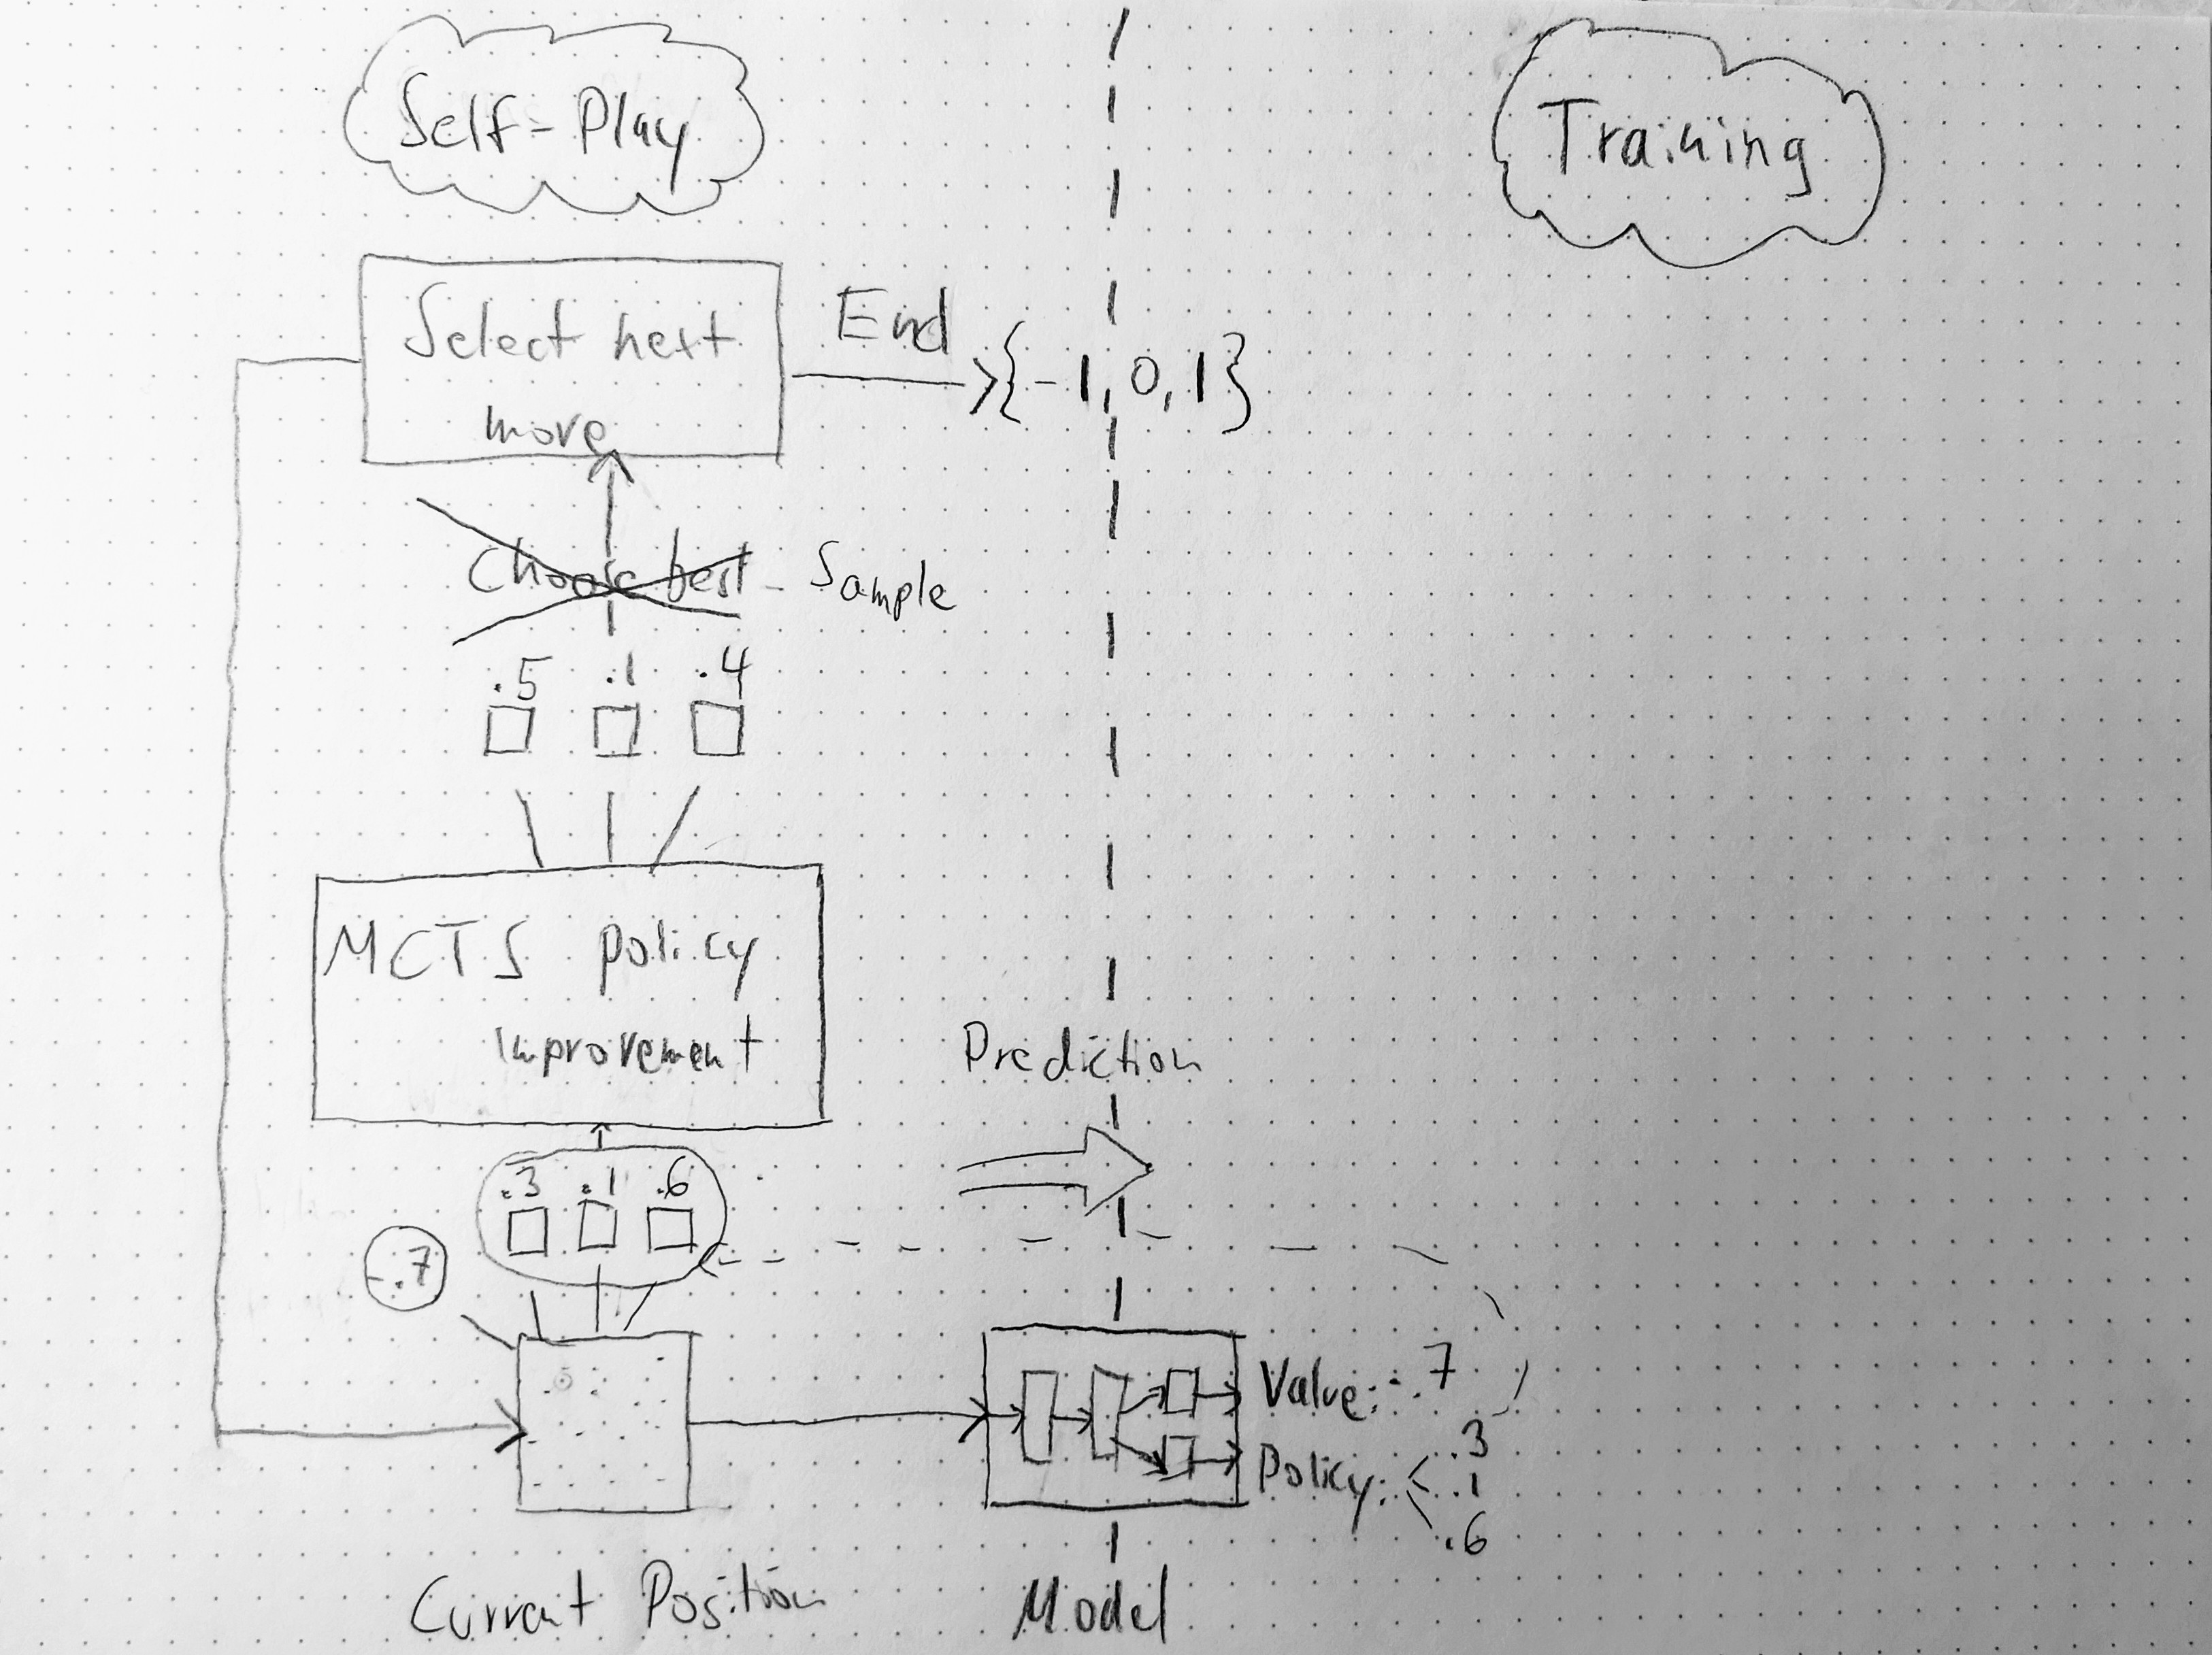 Self-Play
Training
Select next
move
End
{-1, 0, 1}
Choose best
Sample
.5 .1 .4
MCTS policy
improvement
Prediction
.3 .1 .6
-.7
Value: -.7
Policy: .3
.1
.6
Current Position
Model